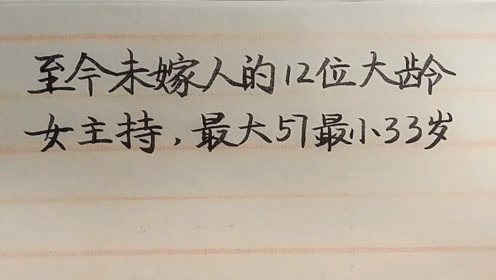 至今未嫁人的12位大龄
女主持，最大57最小33岁